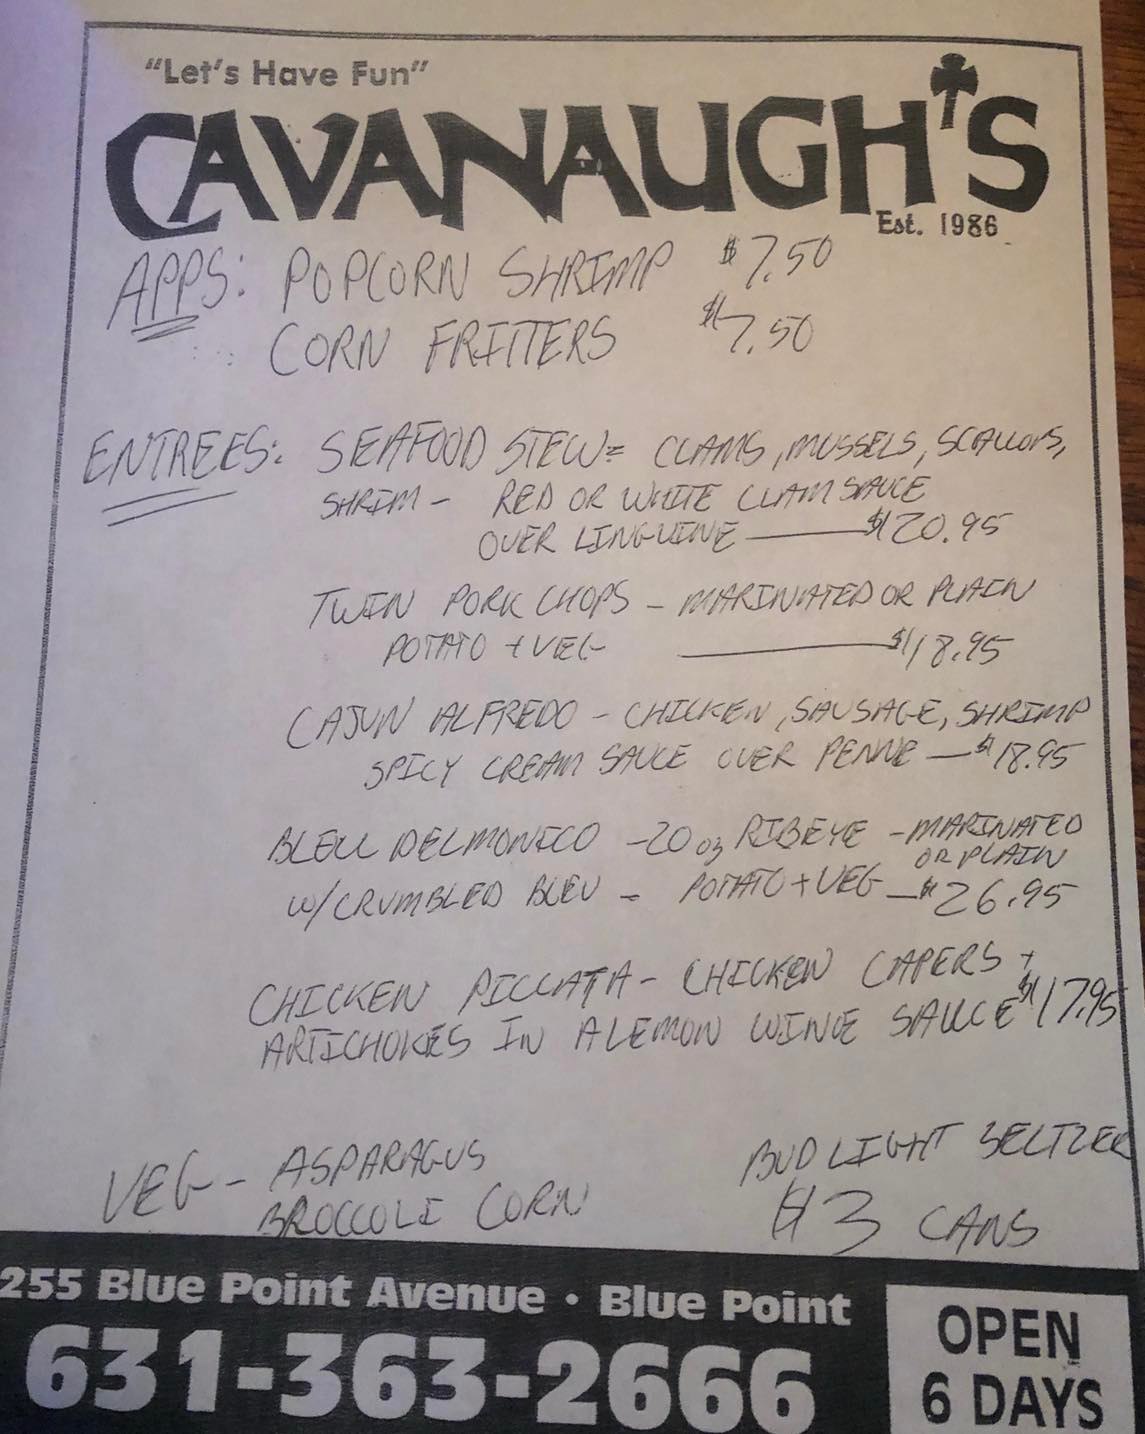 "Let's Have Fun"
CAVANAUGH'S
Est. 1986
APPS: POPCORN SHRIMP $7.50
CORN FRITTERS $7.50
ENTREES: SEAFOOD STEW= CLAMS, MUSSELS, SCALLOPS,
SHRIM - RED OR WHITE CLAM SAUCE
OVER LINGUINE — $20.95
TWIN PORK CHOPS - MARINATED OR PLAIN
POTATO + VEG — $18.95
CAJUN ALFREDO - CHICKEN, SAUSAGE, SHRIMP
SPICY CREAM SAUCE OVER PENNE — $18.95
BLEU DELMONICO - 20 oz RIBEYE - MARINATED
OR PLAIN
W/CRUMBLED BLEU - POTATO + VEG — $26.95
CHICKEN PICCATA - CHICKEN CAPERS +
ARTICHOKES IN A LEMON WINE SAUCE $17.95
VEG - ASPARAGUS
BROCCOLI CORN
BUD LIGHT SELTZER
$3 CANS
255 Blue Point Avenue • Blue Point
631-363-2666
OPEN
6 DAYS